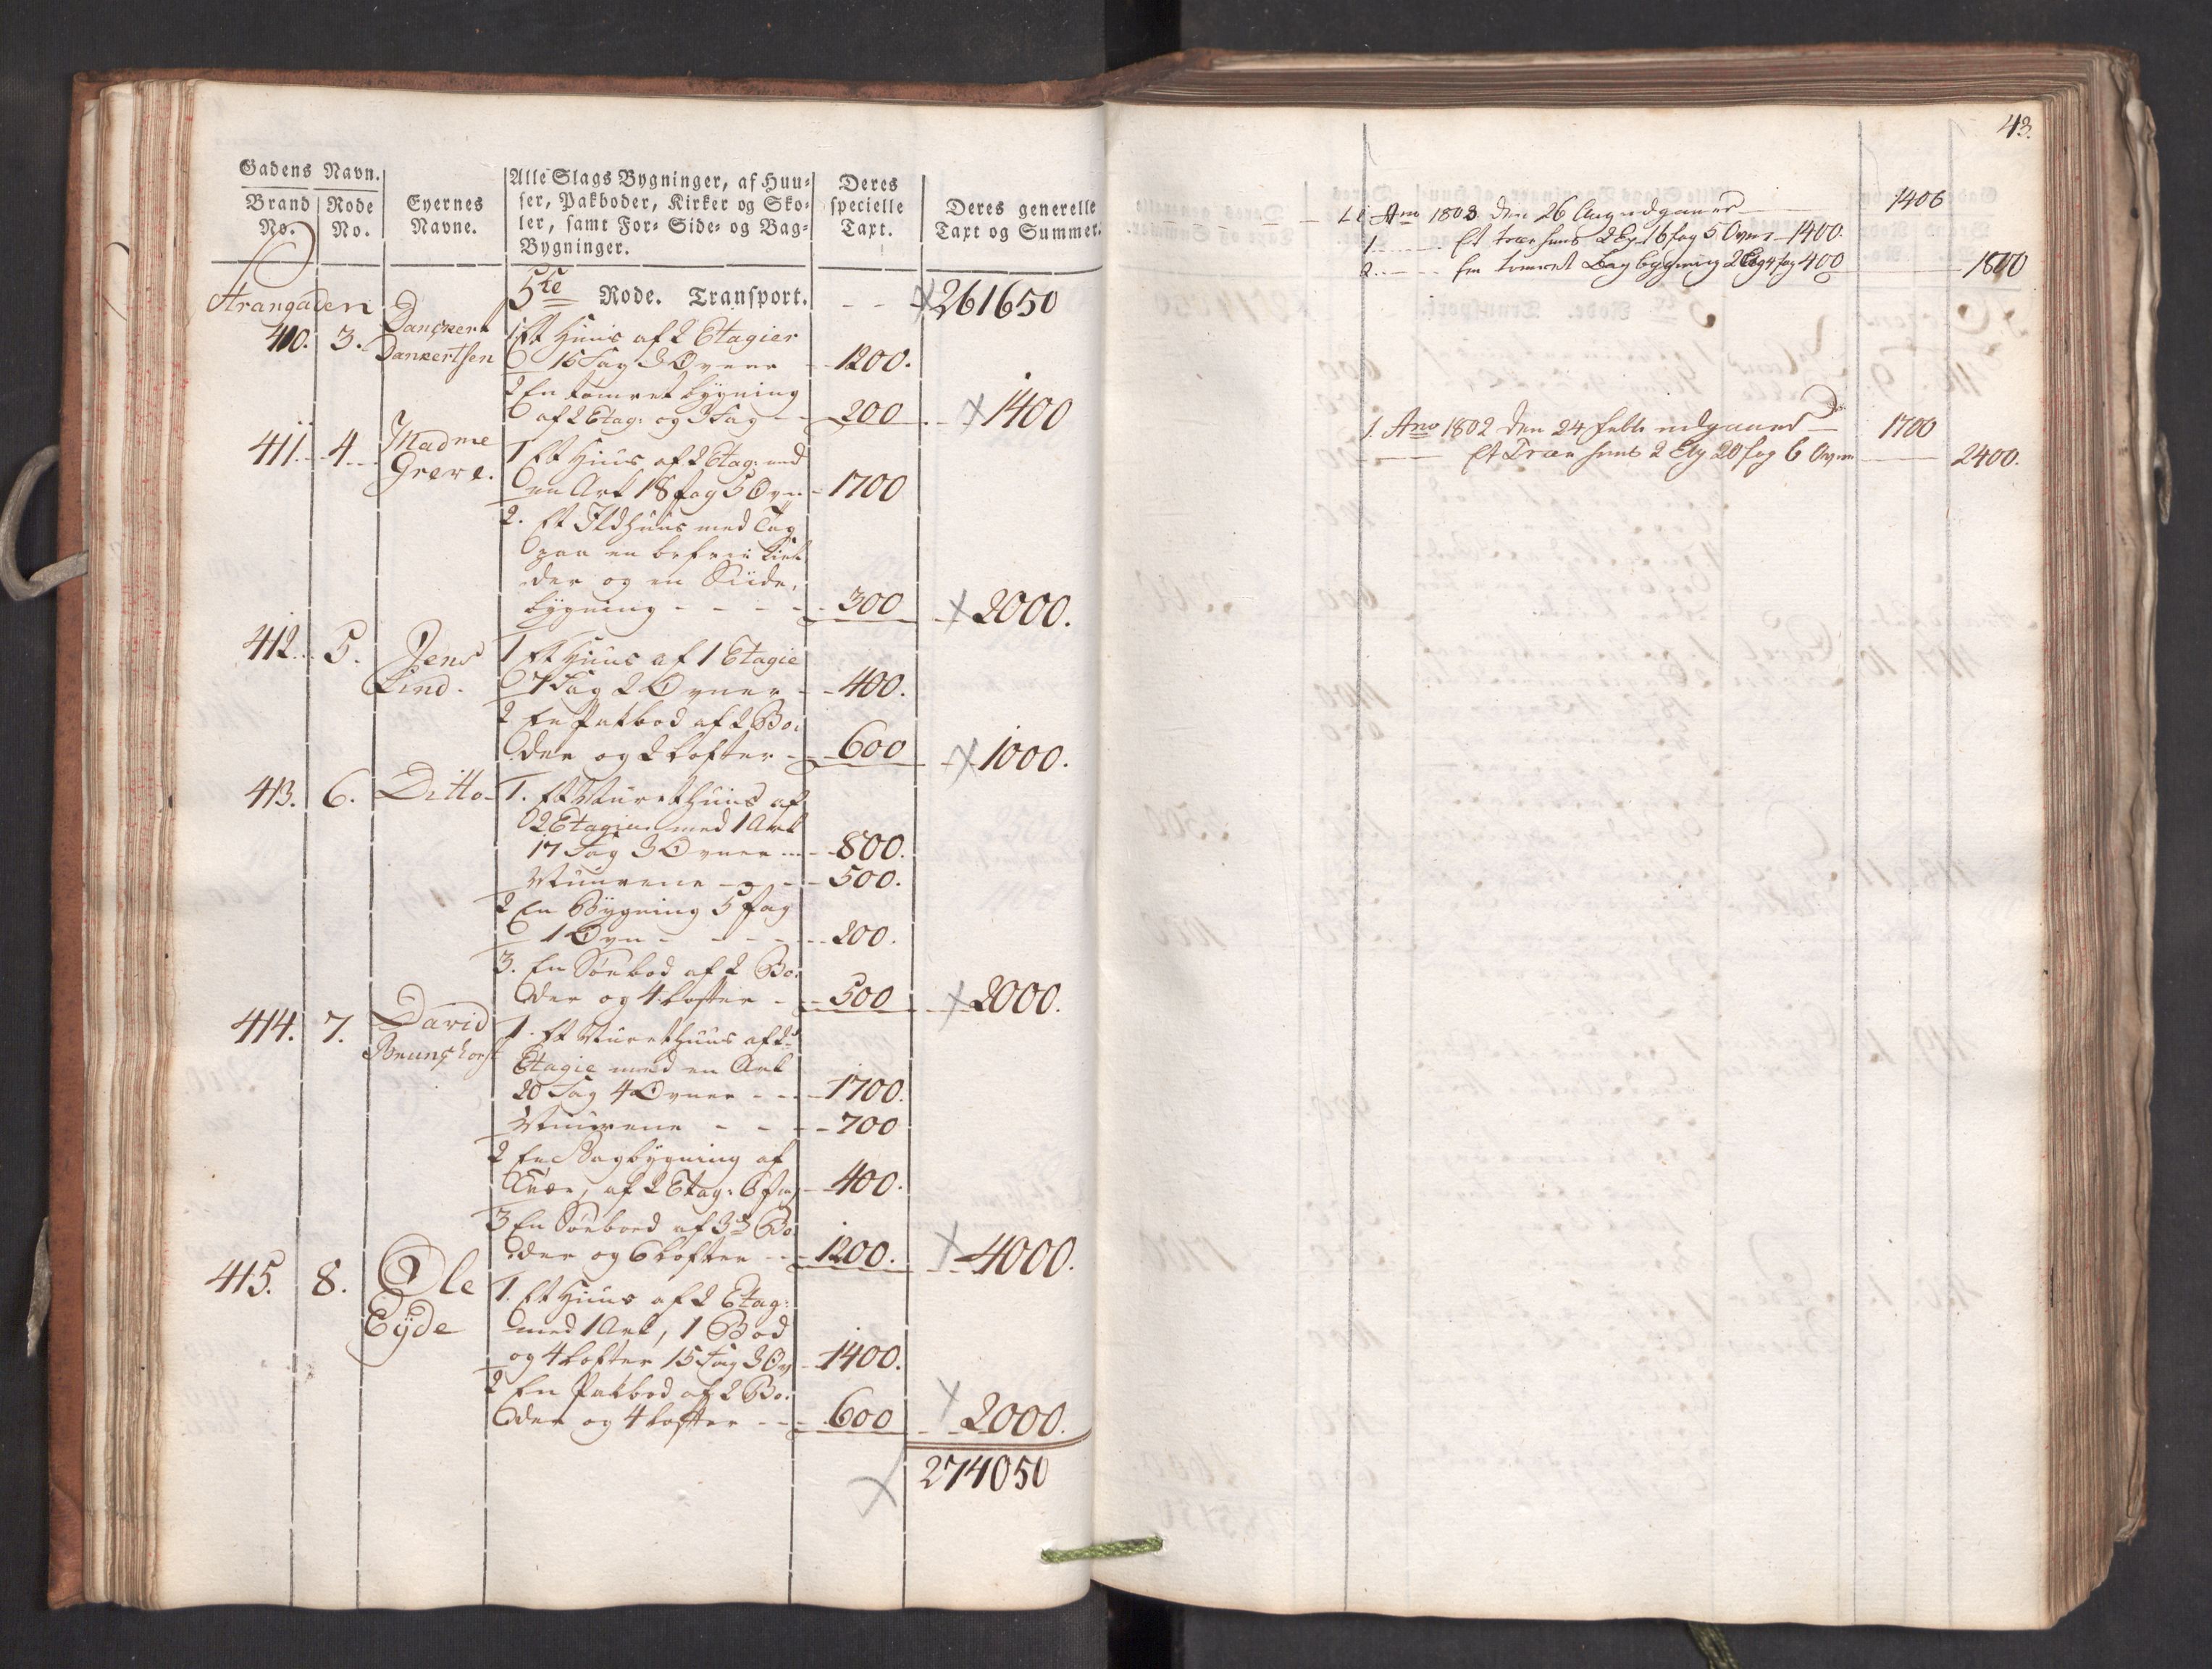 Gadens Navn.
Brand No. Rode No. Eyernes Navne. Alle Slags Bygninger, af Huu-
ser, Pakboder, Kirker og Sko-
ler, samt For- Side- og Bag-
Bygninger. Deres specielle Taxt. Deres generelle Taxt og Summer.
Strangaden 5te Rode. Transport. - - 261650
410. 3. Danckert 1 Et Huus af 2 Etagier
Dankertsen 15 Fag 3 Ovner - 1200.
2 En tømret bygning
af 2 Etag: og 3 Fag - 200 1400
411. 4. Madme 1 Et Huus af 2 Etag: med
Greve. en Ark 18 fag 5 Ovn - 1700
2. Et Ildhuus med Tag
paa en befrii Kiel-
der og en Siide,
bygning - - - - 300 2000.
412. 5. Jens 1 Et Huus af 1 Etagie
Lind. 7 Fag 2 Ovner - - 400.
2 En Pakbod af 2 Bo-
der og 2 Lofter - 600 1000.
413. 6. Ditto 1. Et Muret huus af
2 Etagier med 1 Ark
17 Fag 3 Ovner - 800.
Muurene - - - 500.
2 En Bygning 5 fag
1 Ovn - - - - 200.
3. En Søebod af 2 Bo-
der og 4 Lofter - 500 2000.
414. 7. David 1. Et Muret huus af 2
Brunchorst Etagie med en Ark
20 Fag 4 Ovner - - 1700.
Muurene - - - 700
2 En Bagbygning af
Træe, af 2 Etag: 6 fag - 400.
3 En Søeboed af 3de Bo-
der og 6 Lofter - 1200. 4000.
415. 8. Ole 1. Et Huus af 2 Etag:
Eyde med 1 Ark, 1 Bod
og 4 Lofter 15 Fag 3 Ov - 1400.
2 En Pakbod af 2 Bo-
der og 4 Lofter - - 600 2000.
274050
43.
Ano 1803. den 26 Aug udgaaer 1400
1 - - Et træe huus 2 Etg 16 fag 5 Ovne - 1400.
2 - - En tømret Bag bygning 2 Etg 4 fag 400 1800
1. Ano 1802 den 24 Febr udgaaer - 1700
- - Et Træe huus 2 Etg 20 fag 6 Ovne - 2400.